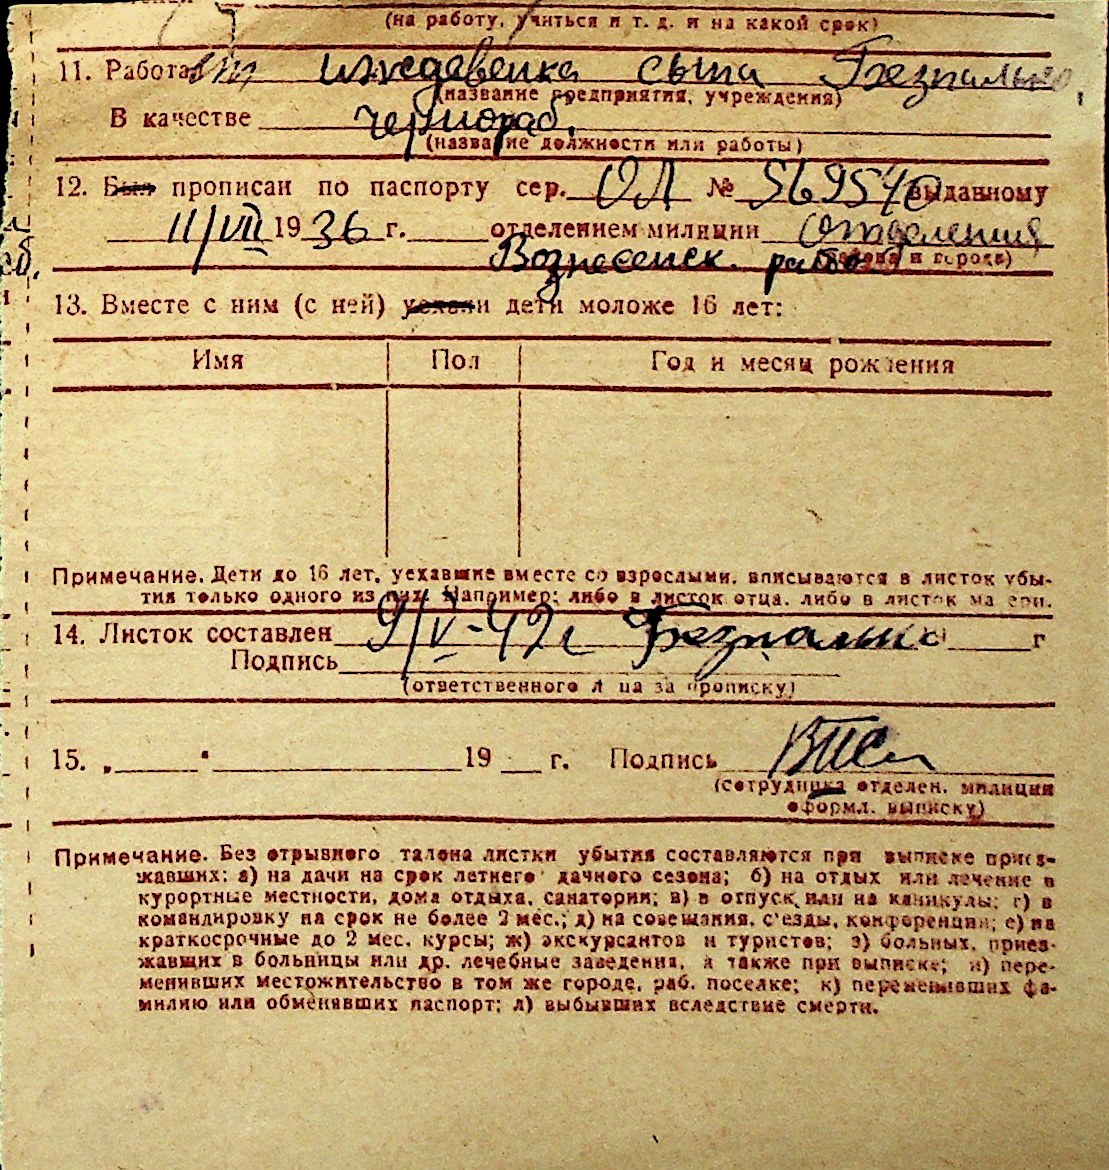 (на работу, учиться и т. д. и на какой срок)
11. Работа иждевенка сына Безпалько
(название предприятия, учреждения)
В качестве чернораб.
(название должности или работы)
12. Был прописан по паспорту сер. ОЛ № 569540 выданному
11/VII 1936 г. отделением милиции Отделения
Вознесенск. рабо (района и города)
13. Вместе с ним (с ней) уехали дети моложе 16 лет:
Имя Пол Год и месяц рождения
Примечание. Дети до 16 лет, уехавшие вместе со взрослыми, вписываются в листок убы-
тия только одного из них. Например: либо в листок отца, либо в листок матери.
14. Листок составлен 9/V-42 г Безпалько г
Подпись
(ответственного лица за прописку)
15. „ “ 19 г. Подпись
(сотрудника отделен. милиции
оформл. выписку)
Примечание. Без отрывного талона листки убытия составляются при выписке приез-
жавших: а) на дачи на срок летнего дачного сезона; б) на отдых или лечение в
курортные местности, дома отдыха, санатории; в) в отпуск или на каникулы; г) в
командировку на срок не более 2 мес.; д) на совещания, с'езды, конференции; е) на
краткосрочные до 2 мес. курсы; ж) экскурсантов и туристов; з) больных, приез-
жавших в больницы или др. лечебные заведения, а также при выписке; и) пере-
менивших местожительство в том же городе, раб. поселке; к) переменивших фа-
милию или обменявших паспорт; л) выбывших вследствие смерти.